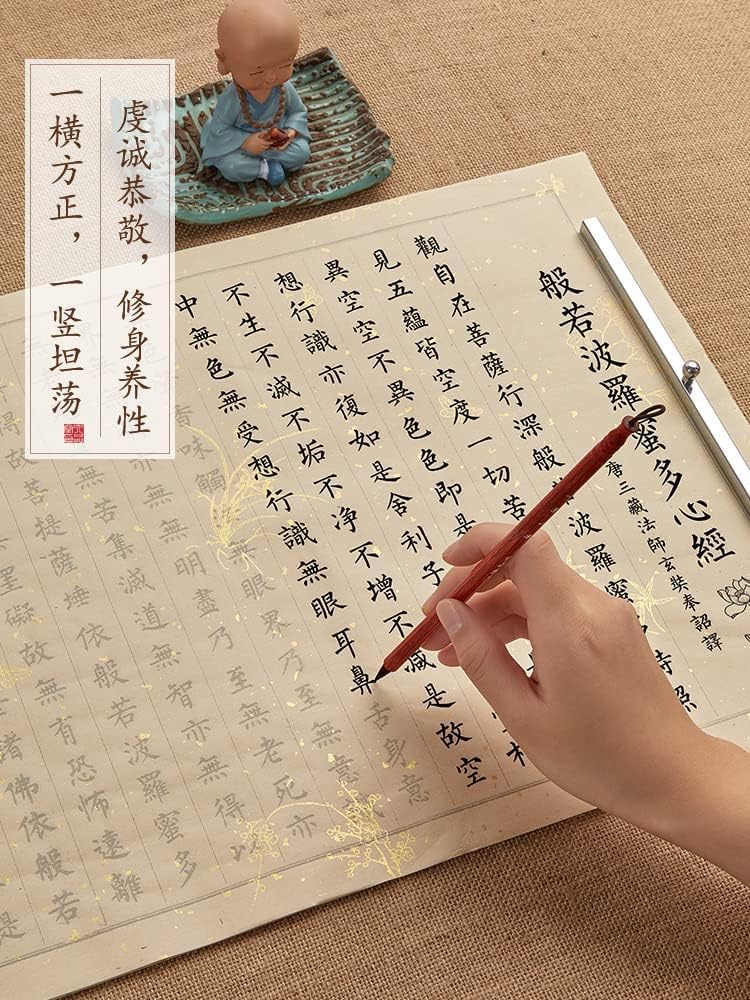 虔诚恭敬，修身养性
一横方正，一竖坦荡
般若波羅蜜多心經
唐三藏法師玄奘奉詔譯
觀自在菩薩行深般波羅蜜時照
見五蘊皆空度一切苦
異空空不異色色即是
想行識亦復如是舍利子
不生不滅不垢不净不增不減是故空
中無色無受想行識無眼耳鼻舌身意
香味觸無眼界乃至無意
無明盡乃至無老死亦
無苦集滅道無智亦無得以
故菩提薩埵依般若波羅蜜多
罣礙故無有恐怖遠離
諸佛依般若
是